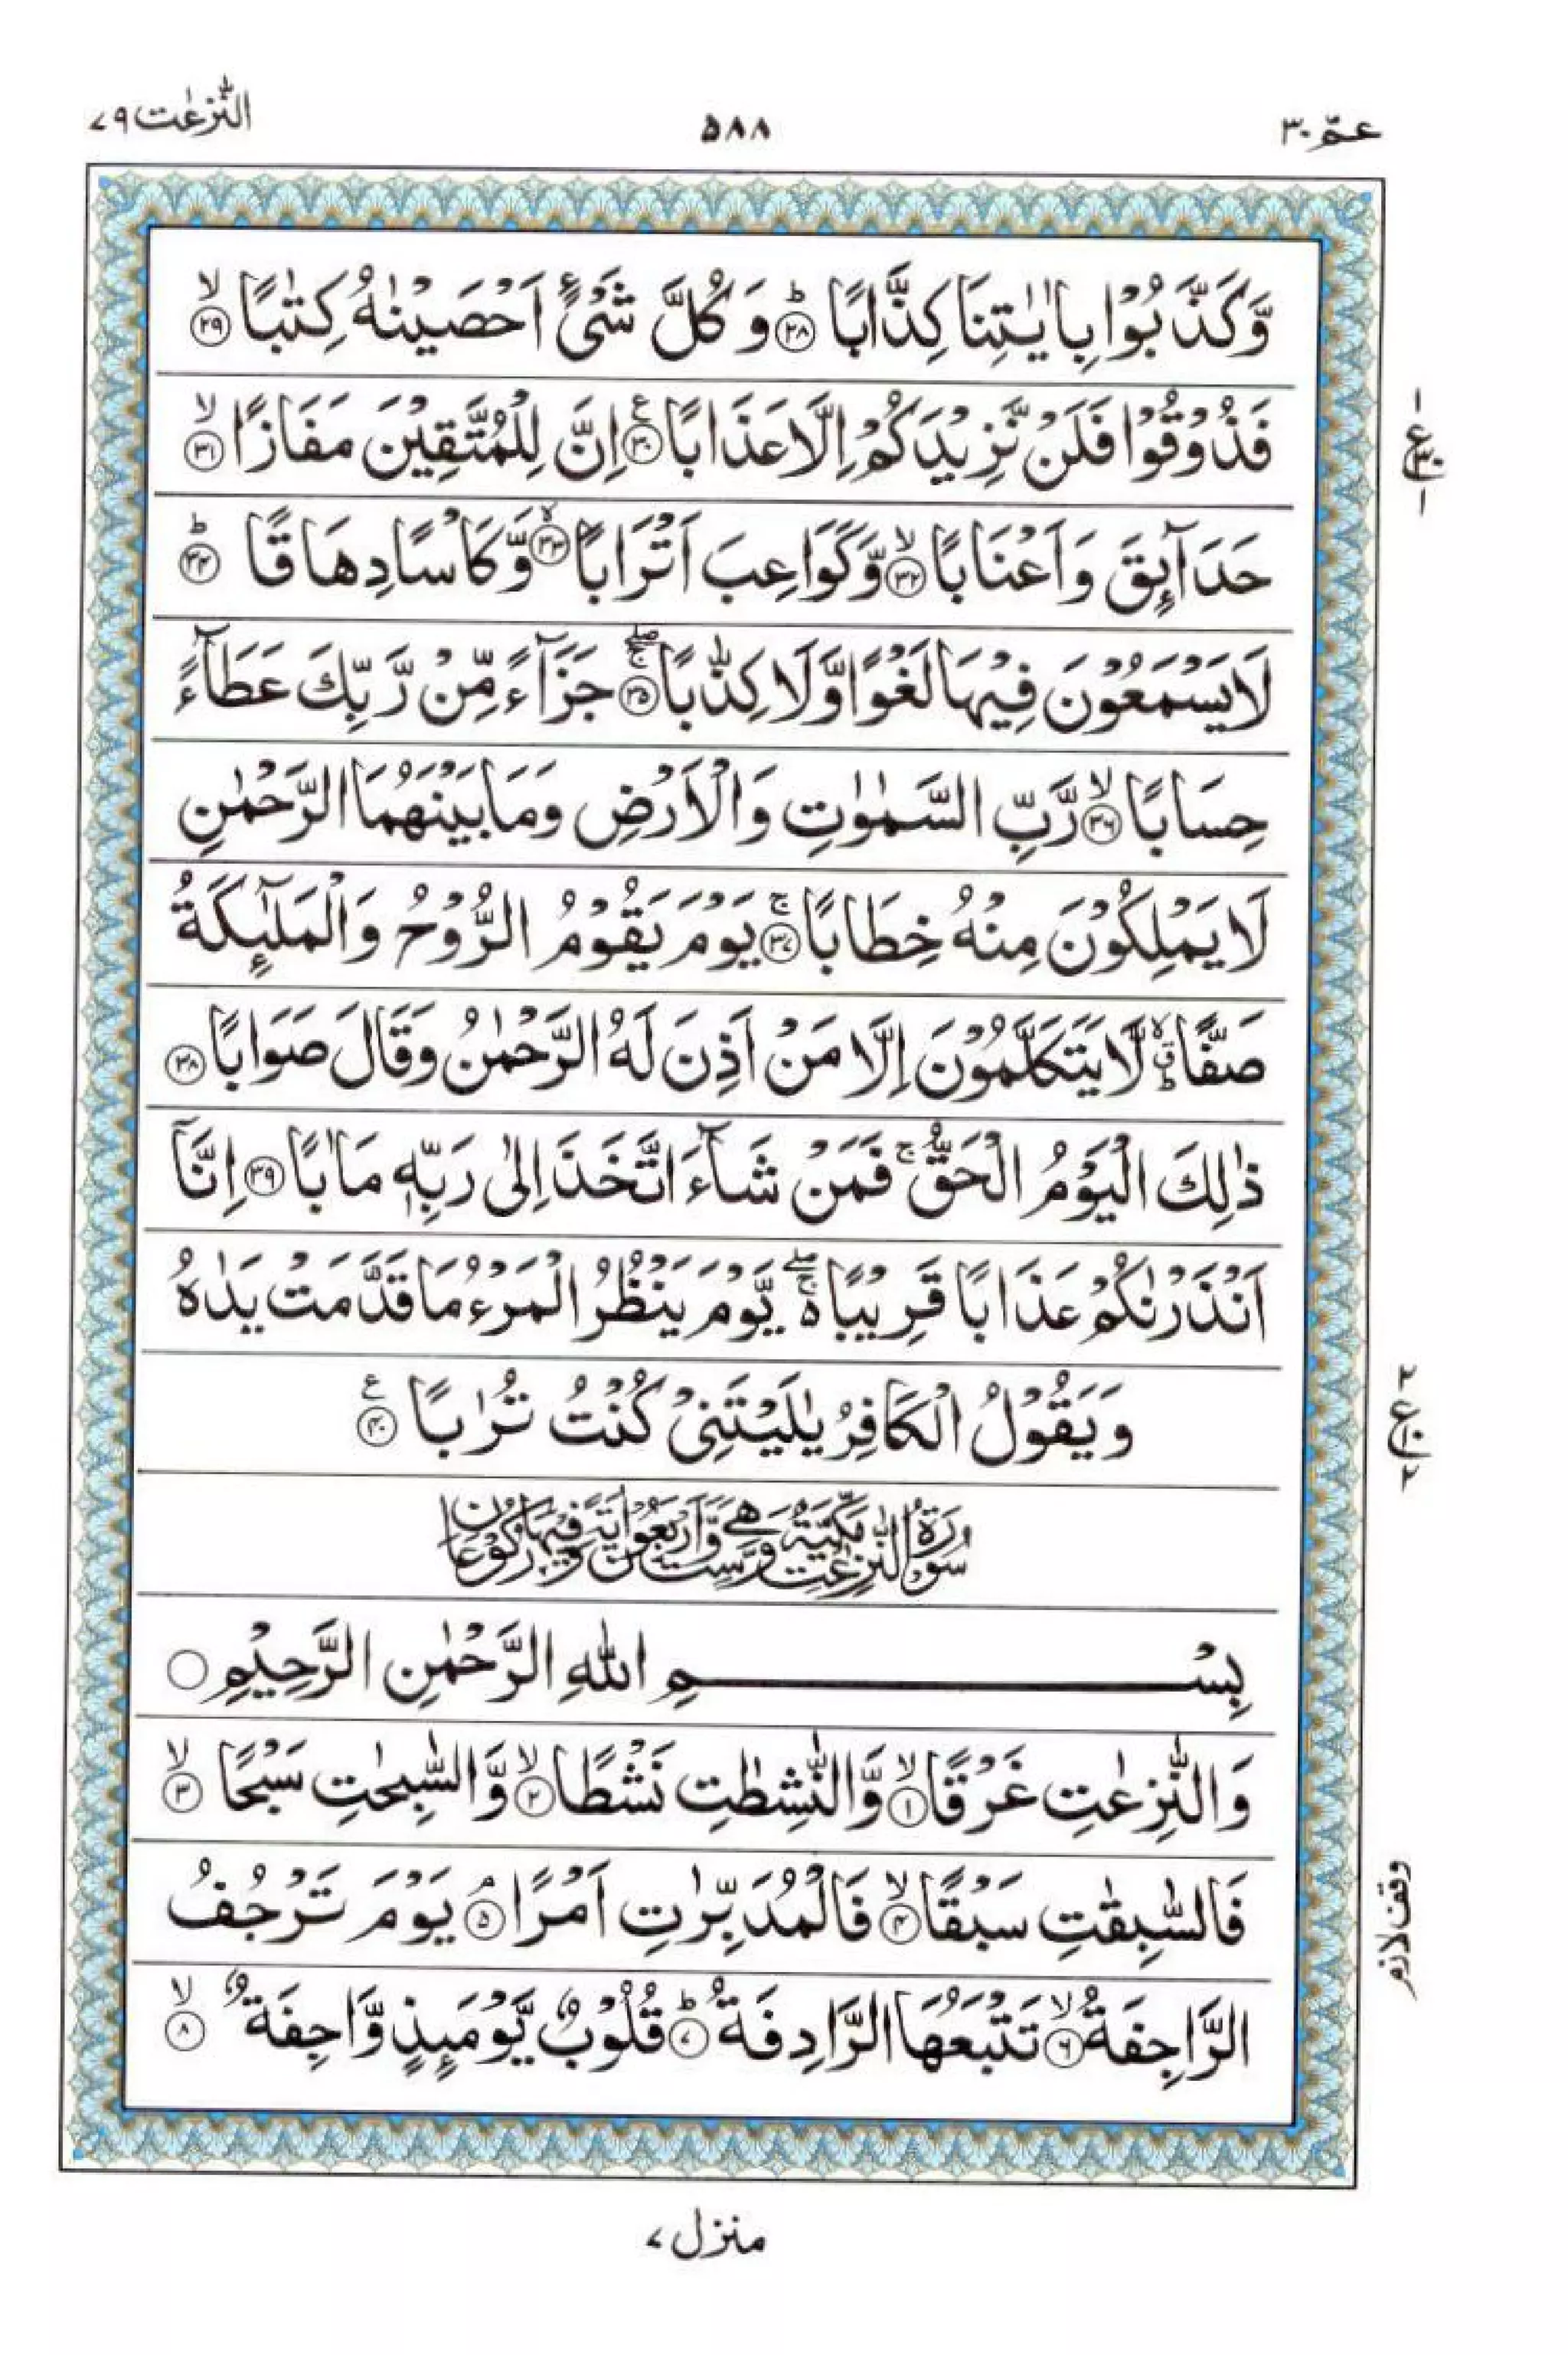 عمّ ٣٠
٥٨٨
النّٰزعٰت ٧٩
وَّكَذَّبُوْا بِاٰيٰتِنَا كِذَّابًا ؕ﴿۲۸﴾ وَ كُلَّ شَىْءٍ اَحْصَيْنٰهُ كِتٰبًا ۙ﴿۲۹﴾
فَذُوْقُوْا فَلَنْ نَّزِيْدَكُمْ اِلَّا عَذَابًا ﴿۳۰﴾ ع اِنَّ لِلْمُتَّقِيْنَ مَفَازًا ۙ﴿۳۱﴾
حَدَآئِقَ وَ اَعْنَابًا ۙ﴿۳۲﴾ وَّكَوَاعِبَ اَتْرَابًا ۙ﴿۳۳﴾ وَّ كَاْسًا دِهَاقًا ؕ﴿۳۴﴾
لَا يَسْمَعُوْنَ فِيْهَا لَغْوًا وَّلَا كِذّٰبًا ۚۖ﴿۳۵﴾ جَزَآءً مِّنْ رَّبِّكَ عَطَآءً
حِسَابًا ۙ﴿۳۶﴾ رَّبِّ السَّمٰوٰتِ وَ الْاَرْضِ وَمَا بَيْنَهُمَا الرَّحْمٰنِ
لَا يَمْلِكُوْنَ مِنْهُ خِطَابًا ۚ﴿۳۷﴾ يَوْمَ يَقُوْمُ الرُّوْحُ وَ الْمَلٰٓئِكَةُ
صَفًّا ۙؕ لَّا يَتَكَلَّمُوْنَ اِلَّا مَنْ اَذِنَ لَهُ الرَّحْمٰنُ وَقَالَ صَوَابًا ﴿۳۸﴾
ذٰلِكَ الْيَوْمُ الْحَقُّ ۚ فَمَنْ شَآءَ اتَّخَذَ اِلٰى رَبِّهٖ مَاٰبًا ﴿۳۹﴾ اِنَّاۤ
اَنْذَرْنٰكُمْ عَذَابًا قَرِيْبًا ۚۖ۬ يَّوْمَ يَنْظُرُ الْمَرْءُ مَا قَدَّمَتْ يَدٰهُ
وَيَقُوْلُ الْكَافِرُ يٰلَيْتَنِىْ كُنْتُ تُرٰبًا ﴿۴۰﴾ ع
سُوْرَةُ النّٰزِعٰتِ مَكِّيَّةٌ وَّهِىَ سِتٌّ وَّاَرْبَعُوْنَ اٰيَةً وَّفِيْهَا رُكُوْعَانِ
بِسْمِ اللّٰهِ الرَّحْمٰنِ الرَّحِيْمِ ○
وَ النّٰزِعٰتِ غَرْقًا ۙ﴿۱﴾ وَّ النّٰشِطٰتِ نَشْطًا ۙ﴿۲﴾ وَّ السّٰبِحٰتِ سَبْحًا ۙ﴿۳﴾
فَالسّٰبِقٰتِ سَبْقًا ۙ﴿۴﴾ فَالْمُدَبِّرٰتِ اَمْرًا ۘ﴿۵﴾ يَوْمَ تَرْجُفُ
الرَّاجِفَةُ ۙ﴿۶﴾ تَتْبَعُهَا الرَّادِفَةُ ؕ﴿۷﴾ قُلُوْبٌ يَّوْمَئِذٍ وَّاجِفَةٌ ۙ﴿۸﴾
١ ع ٣٠ ١
٢ ع ١٠ ٢
وقف لازم
منزل ٧